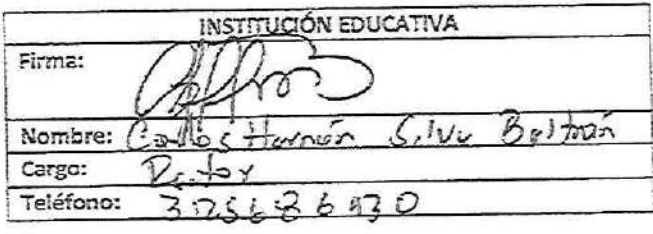 INSTITUCIÓN EDUCATIVA
Firma:
Nombre: Carlos Hernán Silva Beltrán
Cargo: Rector
Teléfono: